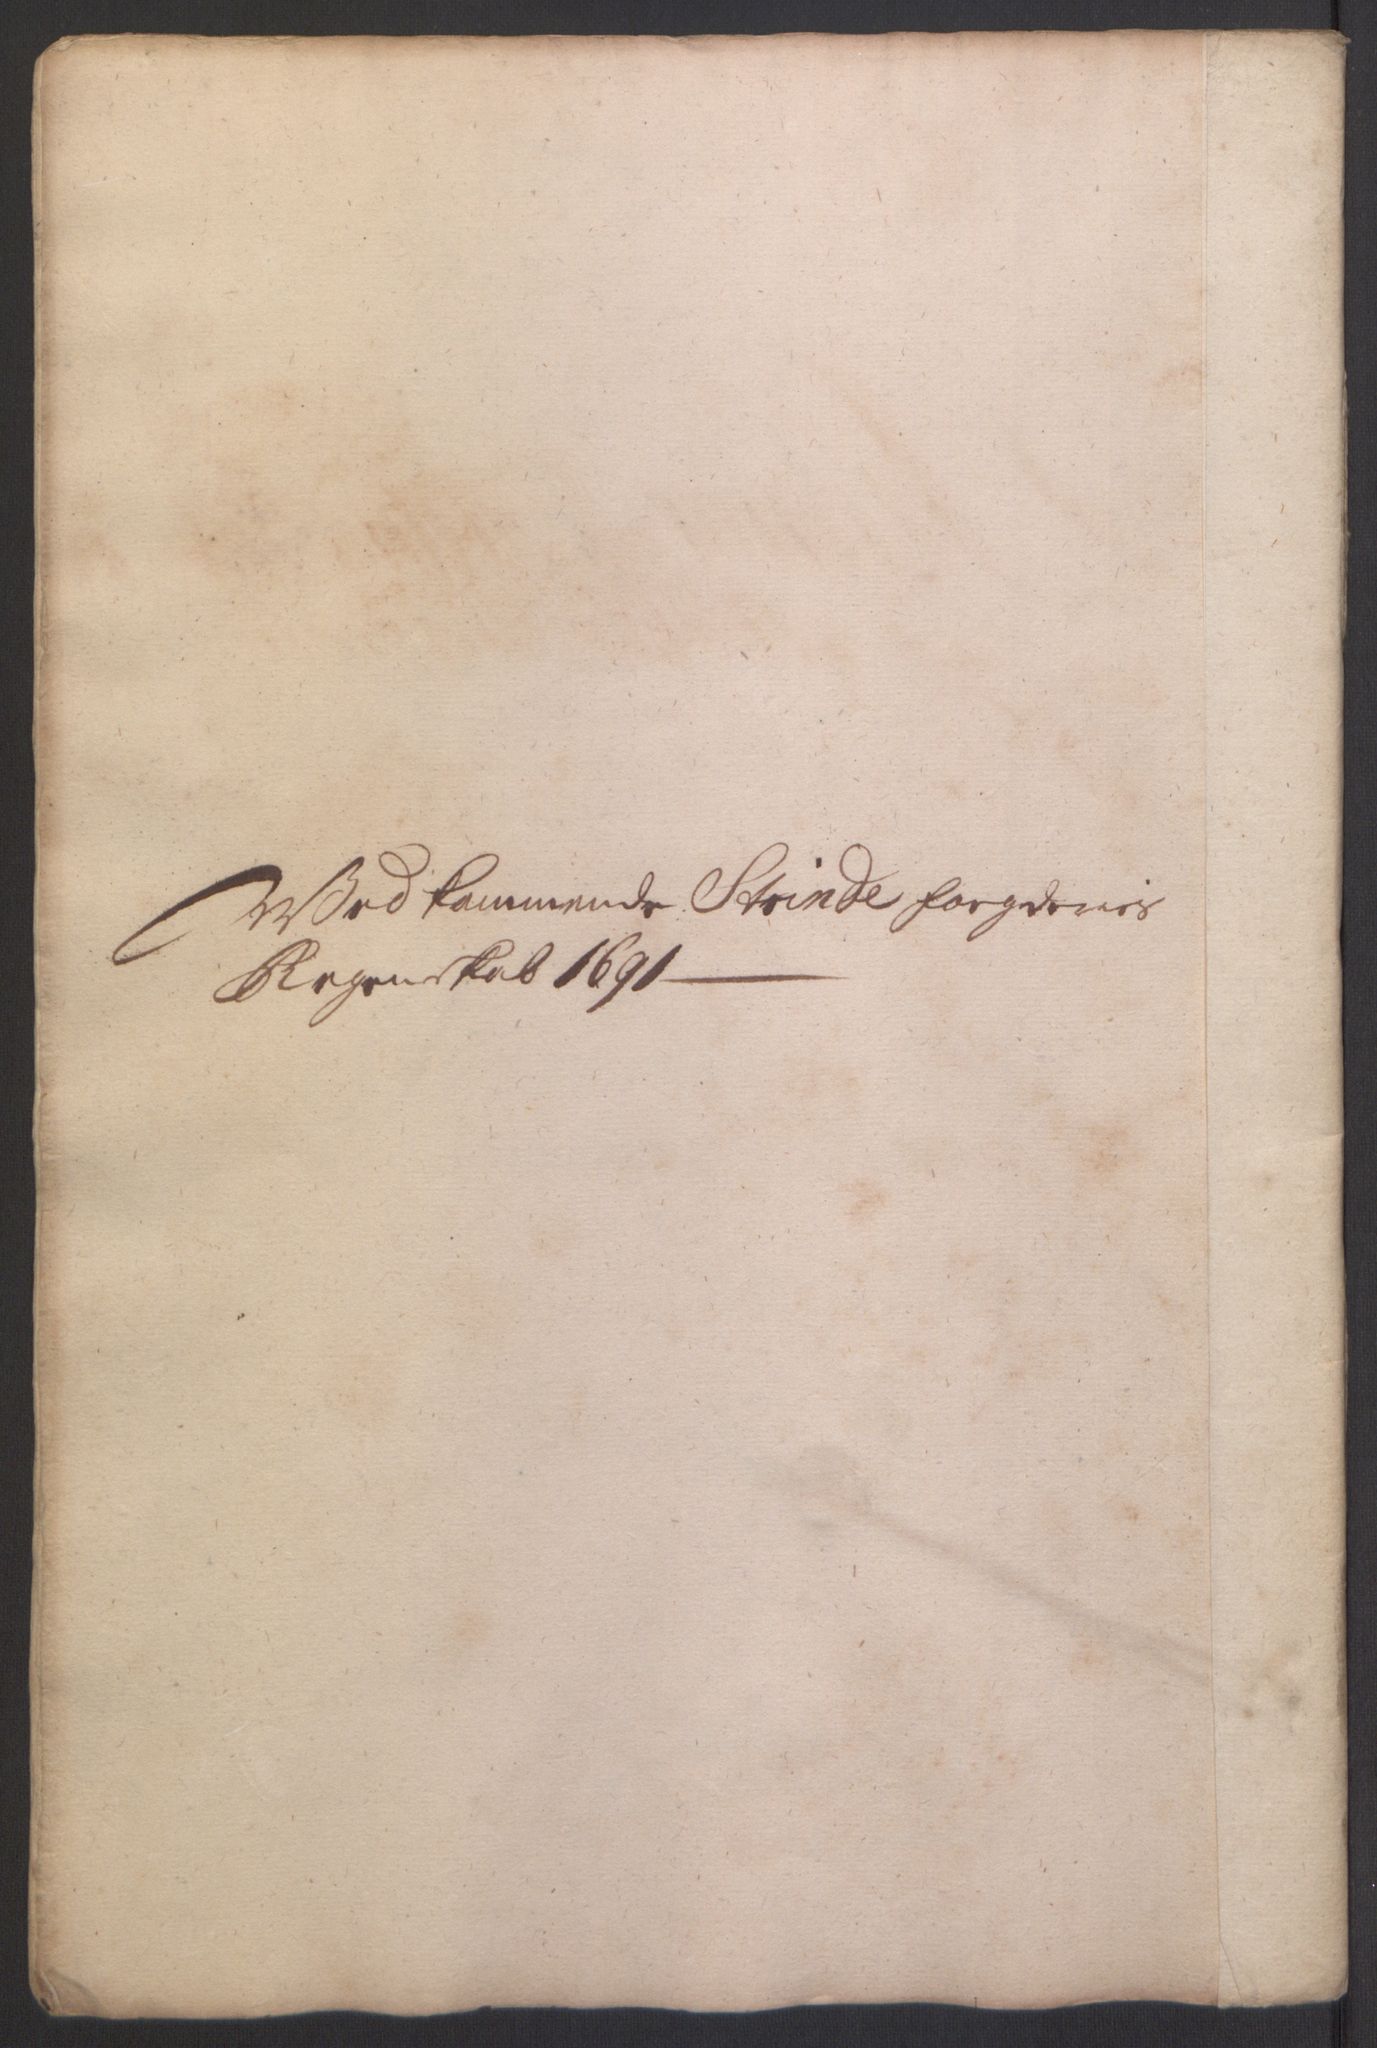 Wedkommende Strinde fougderies
Regenskab 1691